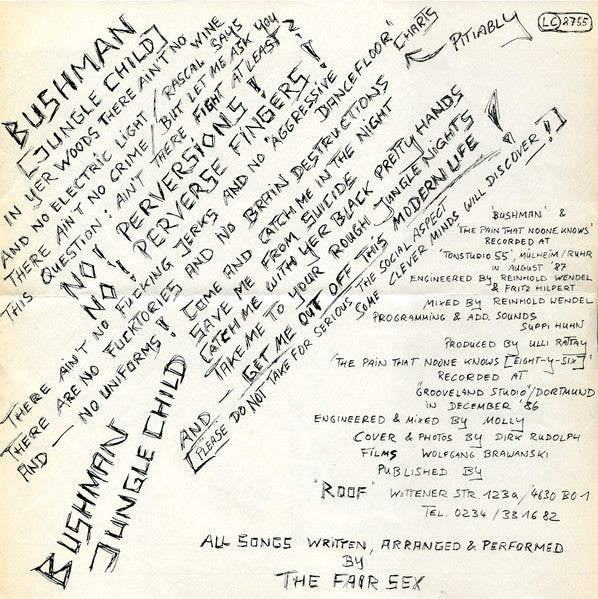 BUSHMAN
[JUNGLE CHILD]
IN YER WOODS THERE AIN'T NO WINE
AND NO ELECTRIC LIGHT / RASCAL SAYS
THERE AIN'T NO CRIME / BUT LET ME ASK YOU
THIS QUESTION: AIN'T THERE FIGHT AT LEAST?
NO! PERVERSIONS!
NO! PERVERSE FINGERS!
THERE AIN'T NO FUCKING JERKS AND NO "AGGRESSIVE DANCEFLOOR" CHARTS
PITIABLY
THERE ARE NO FUCKTORIES AND NO BRAIN DESTRUCTIONS
AND — NO UNIFORMS!
BUSHMAN
JUNGLE CHILD
COME AND CATCH ME IN THE NIGHT
SAVE ME FROM SUICIDE
CATCH ME WITH YER BLACK PRETTY HANDS
TAKE ME TO YOUR ROUGH JUNGLE NIGHTS
AND — GET ME OUT OFF THIS MODERN LIFE!
[PLEASE DO NOT TAKE FOR SERIOUS THE SOCIAL ASPECT
SOME CLEVER MINDS WILL DISCOVER!!]
LC 8755
'BUSHMAN' &
'THE PAIN THAT NOONE KNOWS'
RECORDED AT
'TONSTUDIO 55', MÜLHEIM/RUHR
IN AUGUST '87
ENGINEERED BY REINHOLD WENDEL
& FRITZ HILPERT
MIXED BY REINHOLD WENDEL
PROGRAMMING & ADD. SOUNDS
SUPPI HUHN
PRODUCED BY ULLI RATTAY
'THE PAIN THAT NOONE KNOWS [EIGHT-Y-SIX]'
RECORDED AT
"GROOVELAND STUDIO"/DORTMUND
IN DECEMBER '86
ENGINEERED & MIXED BY MOLLY
COVER & PHOTOS BY DIRK RUDOLPH
FILMS WOLFGANG BRAWANSKI
PUBLISHED BY
"ROOF" WITTENER STR. 123a/4630 BO 1
TEL. 0234/33 16 82
ALL SONGS WRITTEN, ARRANGED & PERFORMED
BY
THE FAIR SEX